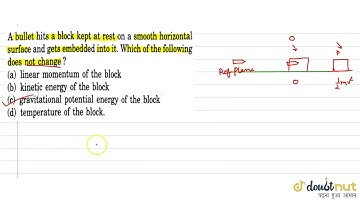 A bullet hits a block kept at rest on a smooth horizontal
surface and gets embedded into it. Which of the following
does not change ?
(a) linear momentum of the block
(b) kinetic energy of the block
(c) gravitational potential energy of the block
(d) temperature of the block.
0
Ref plane
0
½mv²
doubtnut
पढ़ना हुआ आसान